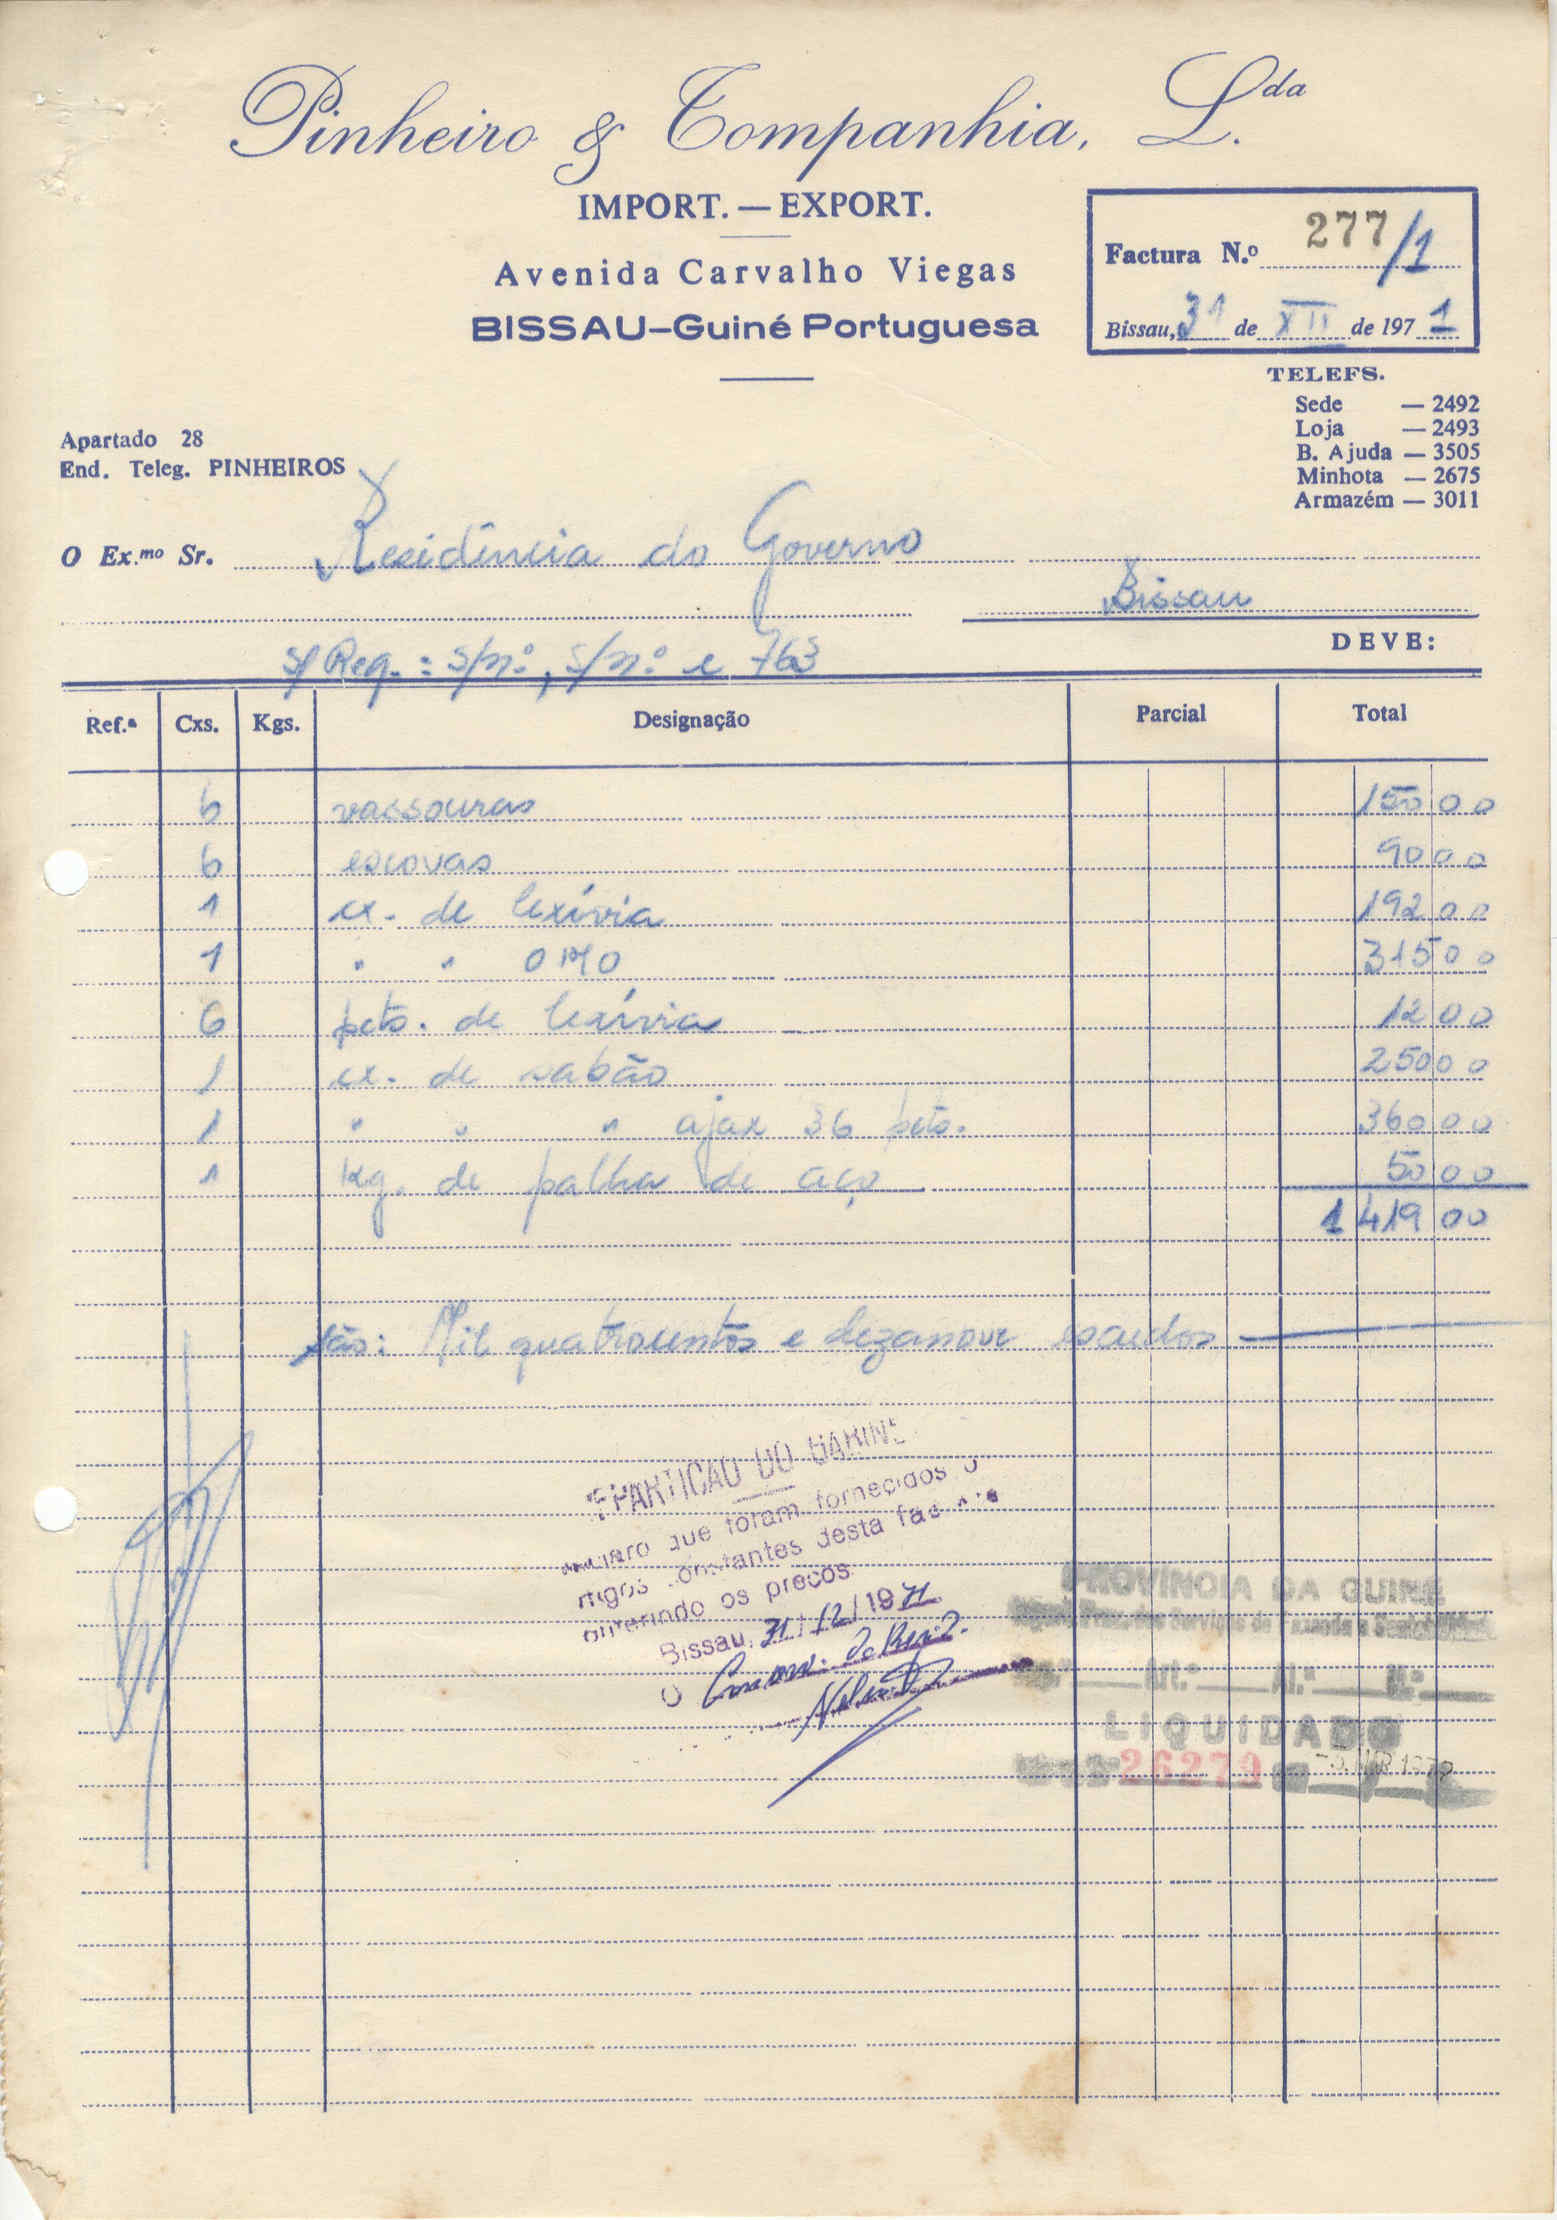 Pinheiro & Companhia, L.da
IMPORT. — EXPORT.
Avenida Carvalho Viegas
BISSAU-Guiné Portuguesa
Factura N.º 277/1
Bissau, 31 de XII de 1971
TELEFS.
Sede — 2492
Loja — 2493
B. Ajuda — 3505
Minhota — 2675
Armazém — 3011
Apartado 28
End. Teleg. PINHEIROS
O Ex.mo Sr. Residência do Governo
Bissau
DEVE:
S/ Req.: S/nº, S/nº e 763
Ref.ª Cxs. Kgs. Designação Parcial Total
6 vassouras 150 00
6 escovas 90 00
1 cx. de lexívia 192 00
1 " " OMO 315 00
6 pcts. de lexívia 12 00
1 cx. de sabão 250 00
1 " " " ajax 36 pcts. 360 00
1 kg. de palha de aço 50 00
1 419 00
São: Mil quatrocentos e dezanove escudos
que foram fornecidos o
constantes desta
os preços
Bissau, 31/12/1971
O
PROVÍNCIA DA GUINÉ
Serviços de Fazenda e
Art.º Al.ª N.º
LIQUIDADO
26279